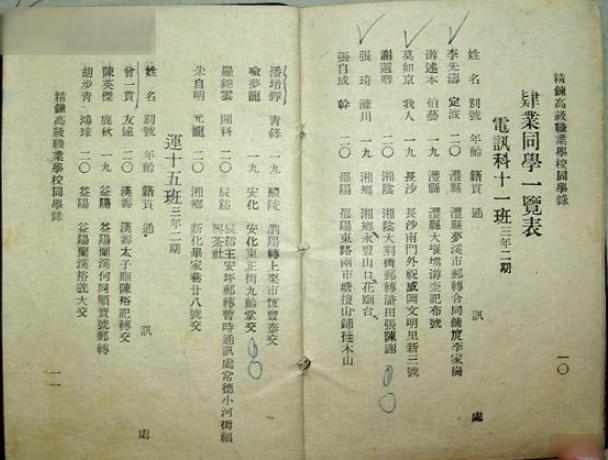 精鍊高級職業學校同學錄
肄業同學一覽表
電訊科十一班 三年二期
姓名 別號 年齡 籍貫 通訊處
李先濤 定波 二〇 澧縣 澧縣夢溪市郵轉合同鋪度李家崗
游述本 伯藝 一九 澧縣 澧縣大堰壋游奎記布號
莫如京 我人 一九 長沙 長沙南門外祝威岡文明里新三號
謝選聯 二〇 湘陰 湘陰大荆街郵轉 張陳謝
張琦 濂川 一九 湘鄉 湘鄉永豐山口花廟台
張自成 幹 二〇 邵陽 邵陽東路兩市塘檀山鋪桂木山
一〇
潘培鋅 青錄 一九 醴陵 瀏陽轉上栗市恆豐泰交
喻夢龍 一九 安化 安化東正街九齡堂交
羅錦雲 開科 二〇 辰谿 辰谿王安坪郵轉暫時通訊處常德小河街福興茶社
朱自明 元龍 二〇 湘鄉 新化學家巷廿八號交
運十五班 三年二期
姓名 別號 年齡 籍貫 通訊處
曾一貫 友遠 二〇 漢壽 漢壽太子廟陳裕記轉交
陳英傑 鹿秋 一九 益陽 益陽蘭溪何同順寶號郵轉
胡步青 鴻球 二〇 益陽 益陽蘭溪裕 大交
精鍊高級職業學校同學錄
一一